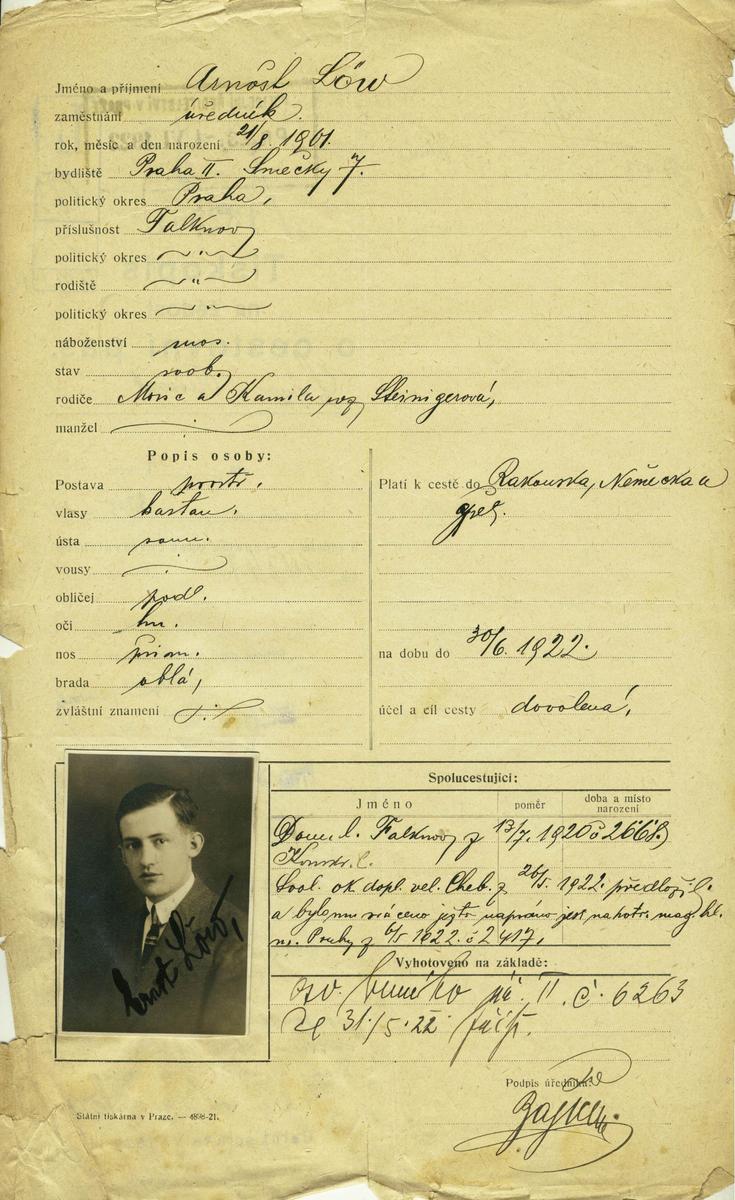 Jméno a příjmení Arnošt Löw
zaměstnání úředník.
rok, měsíc a den narození 21/8. 1901.
bydliště Praha II. Smečky 7.
politický okres Praha,
příslušnost Falknov
politický okres — " —
rodiště — " —
politický okres — " —
náboženství mos.
stav svob.
rodiče Moric a Kamila roz. Steinigerová,
manžel
Popis osoby:
Postava prostř.
vlasy kaštan.
ústa soum.
vousy
obličej podl.
oči hn.
nos přim.
brada oblá,
zvláštní znamení
Platí k cestě do Rakouska, Německa a
zpět.
na dobu do 30/6. 1922.
účel a cíl cesty dovolená,
Spolucestující:
Jméno poměr doba a místo narození
Dom. l. Falknov z 13/7. 1920 č 2668.
Soul. ok dopl. vel. Cheb. z 1922. předložil.
a bylo mu vráceno
Prahy z 6/5 1922. č 2417,
Vyhotoveno na základě:
II. č. 6263
31./5. 22
Ernst Löw,
Podpis úředníka:
Státní tiskárna v Praze. — 4898-21.